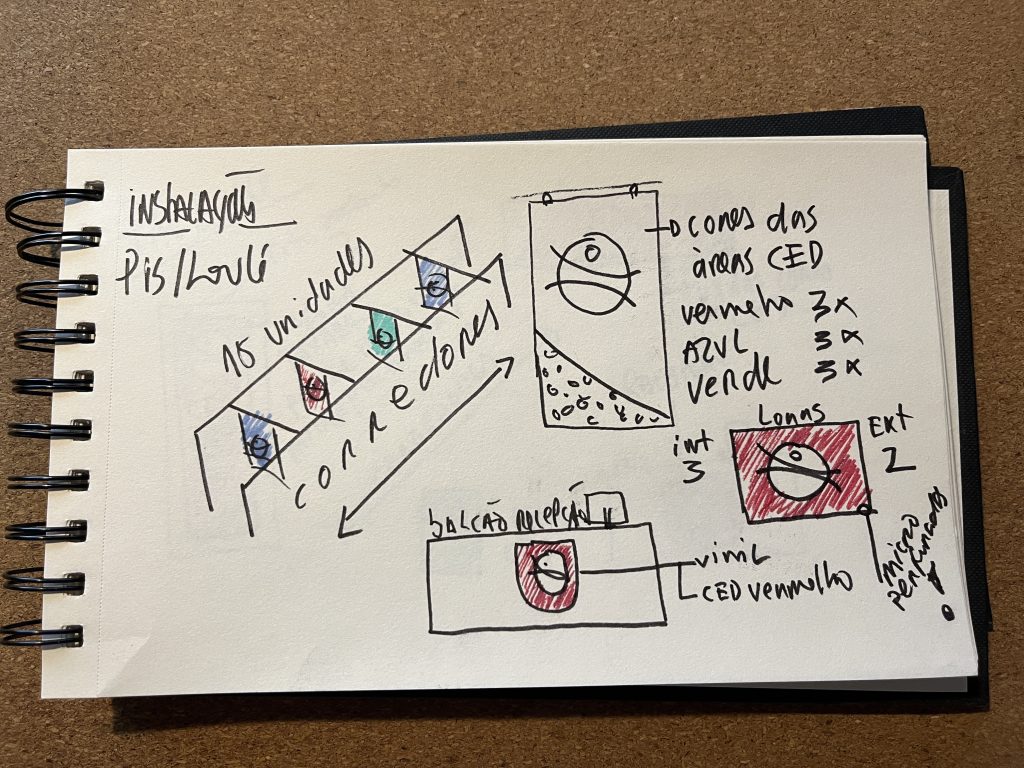 INSTALAÇÃO
PIS/Loulé
15 unidades
corredores
cones das
áreas CED
vermelho 3x
AZUL 3x
verde 3x
Lonas
int
3
EXT
2
micro
balcão recepção
vinil
CED vermelho